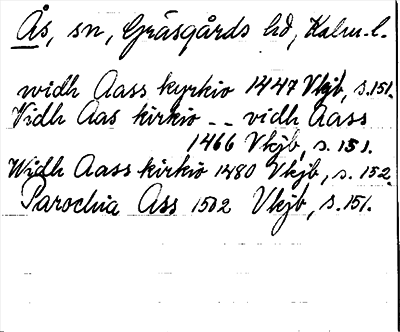 Ås, sn, Gräsgårds hd, Kalm. l.
widh Aass kyrkio 1447 Vkjb, s. 151.
Vidh Aas kirkio -- vidh Aass
1466 Vkjb, s. 151.
Widh Aass kirkio 1480 Vkjb, s. 152.
Parochia Ass 1502 Vkjb, s. 151.